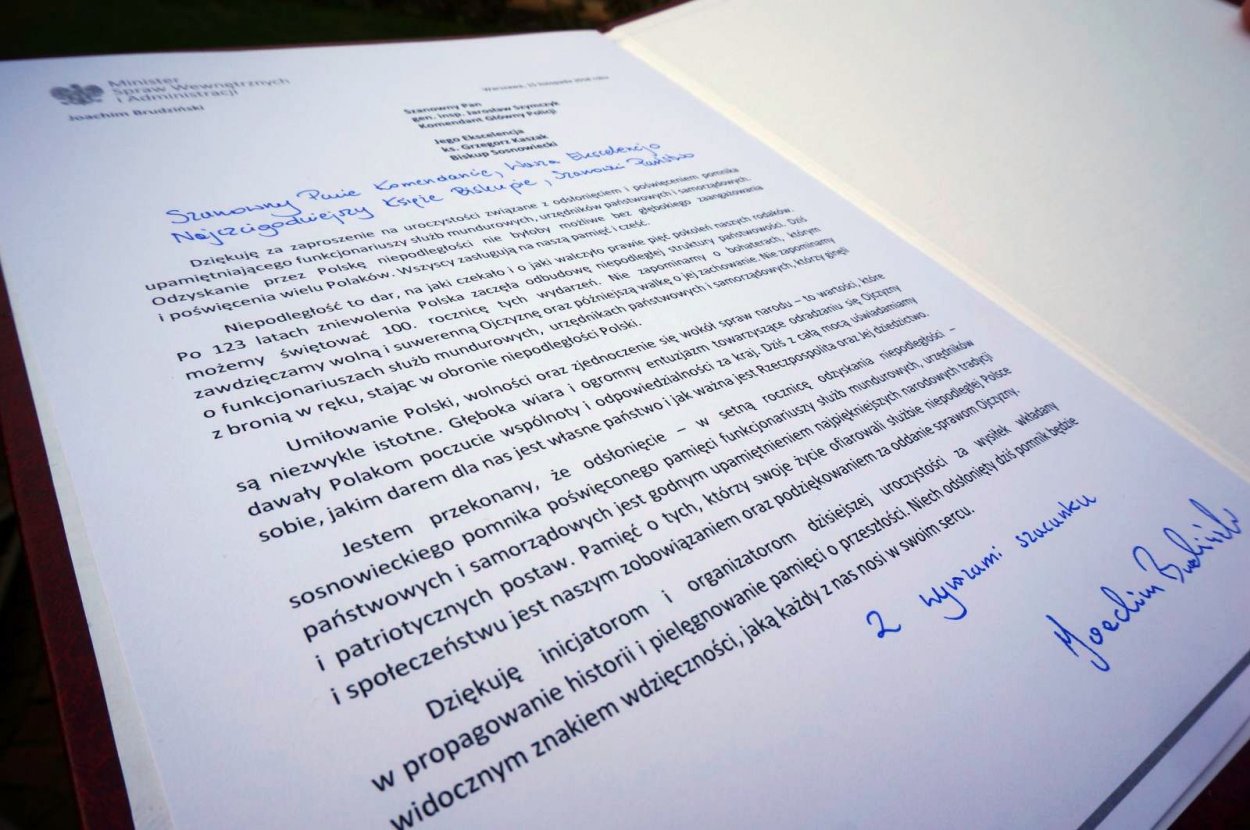 Minister
Spraw Wewnętrznych
i Administracji
Joachim Brudziński
Warszawa, listopada 2018 roku
Szanowny Pan
gen. insp. Jarosław Szymczyk
Komendant Główny Policji
Jego Ekscelencja
ks. Grzegorz Kaszak
Biskup Sosnowiecki
Szanowny Panie Komendancie, Wasza Ekscelencjo
Najczcigodniejszy Księże Biskupie, Szanowni Państwo
Dziękuję za zaproszenie na uroczystości związane z odsłonięciem i poświęceniem pomnika
upamiętniającego funkcjonariuszy służb mundurowych, urzędników państwowych i samorządowych.
Odzyskanie przez Polskę niepodległości nie byłoby możliwe bez głębokiego zaangażowania
i poświęcenia wielu Polaków. Wszyscy zasługują na naszą pamięć i cześć.
Niepodległość to dar, na jaki czekało i o jaki walczyło prawie pięć pokoleń naszych rodaków.
Po 123 latach zniewolenia Polska zaczęła odbudowę niepodległej struktury państwowości. Dziś
możemy świętować 100. rocznicę tych wydarzeń. Nie zapominamy o bohaterach, którym
zawdzięczamy wolną i suwerenną Ojczyznę oraz późniejszą walkę o jej zachowanie. Nie zapominamy
o funkcjonariuszach służb mundurowych, urzędnikach państwowych i samorządowych, którzy ginęli
z bronią w ręku, stając w obronie niepodległości Polski.
Umiłowanie Polski, wolności oraz zjednoczenie się wokół spraw narodu – to wartości, które
są niezwykle istotne. Głęboka wiara i ogromny entuzjazm towarzyszące odradzaniu się Ojczyzny
dawały Polakom poczucie wspólnoty i odpowiedzialności za kraj. Dziś z całą mocą uświadamiamy
sobie, jakim darem dla nas jest własne państwo i jak ważna jest Rzeczpospolita oraz Jej dziedzictwo.
Jestem przekonany, że odsłonięcie – w setną rocznicę odzyskania niepodległości –
sosnowieckiego pomnika poświęconego pamięci funkcjonariuszy służb mundurowych, urzędników
państwowych i samorządowych jest godnym upamiętnieniem najpiękniejszych narodowych tradycji
i patriotycznych postaw. Pamięć o tych, którzy swoje życie ofiarowali służbie niepodległej Polsce
i społeczeństwu jest naszym zobowiązaniem oraz podziękowaniem za oddanie sprawom Ojczyzny.
Dziękuję inicjatorom i organizatorom dzisiejszej uroczystości za wysiłek wkładany
w propagowanie historii i pielęgnowanie pamięci o przeszłości. Niech odsłonięty dziś pomnik będzie
widocznym znakiem wdzięczności, jaką każdy z nas nosi w swoim sercu.
Z wyrazami szacunku
Joachim Brudziński